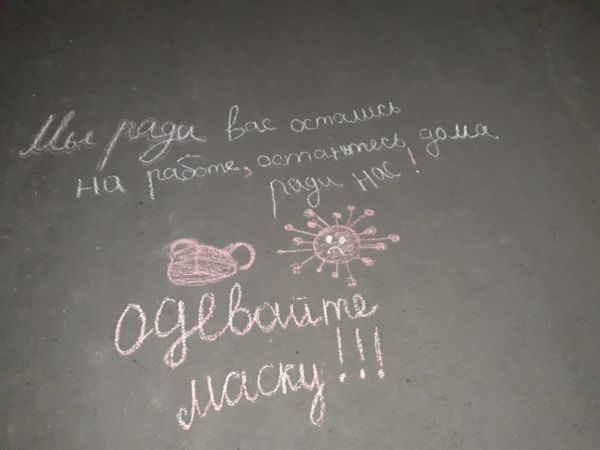 Мы ради вас остались
на работе, останьтесь дома
ради нас!
одевайте
маску!!!